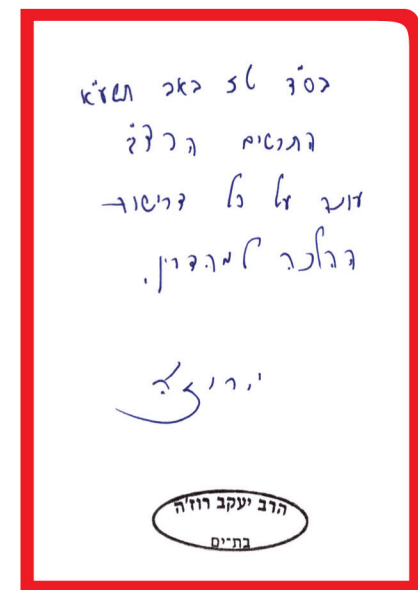 בס"ד טז באב תשע"א
התרשים הרצ"ב
עונה על כל דרישות
ההלכה למהדרין.
י. רוז'ה
הרב יעקב רוז'ה
בת־ים